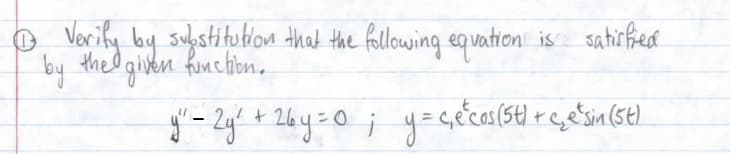 ① Verify by substitution that the following equation is satisfied
by the given function.
y'' - 2y' + 26y = 0 ; y = c₁eᵗcos(5t) + c₂eᵗsin(5t)